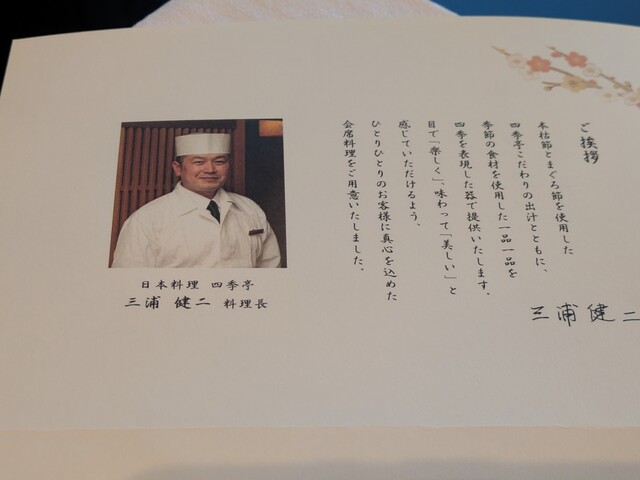 ご挨拶
本枯節とまぐろ節を使用した
四季亭こだわりの出汁とともに、
季節の食材を使用した一品一品を
四季を表現した器で提供いたします。
目で「楽しく」、味わって「美しい」と
感じていただけるよう、
ひとりひとりのお客様に真心を込めた
会席料理をご用意いたしました。
三浦健二
日本料理 四季亭
三浦 健二 料理長